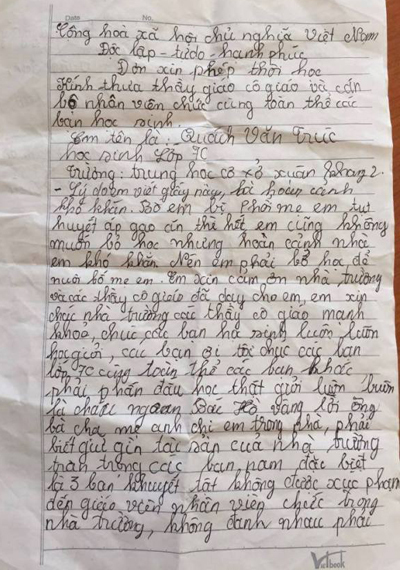 Date No.
Cộng hoà xã hội chủ nghĩa Việt Nam
Độc lập - tự do - hạnh phúc
Đơn xin phép thôi học
Kính thưa thầy giáo cô giáo và cán
bộ nhân viên chức cùng toàn thể các
bạn học sinh
Em tên là: Quách Văn Trúc
học sinh Lớp 7C
Trường: trung học cơ xở xuân phang 2.
- Lí do em viết giấy này, là hoàn cảnh
khó khăn. Bố em bị Phổi mẹ em tụt
huyết áp gạo ăn thì hết em cũng không
muốn bỏ học nhưng hoàn cảnh nhà
em khó khăn. Nên em phải bỏ học để
nuôi bố mẹ em. Em xin cảm ơn nhà trường
và các thầy cô giáo đã dạy cho em, em xin
chúc nhà trường các thầy cô giáo mạnh
khoẻ, chúc các bạn học sinh luôn luôn
học giỏi, các bạn ơi tôi chúc các bạn
lớp 7C cùng toàn thể các bạn khác
phải phấn đấu học thật giỏi luôn luôn
là cháu ngoan Bác Hồ vâng lời ông
bà cha mẹ anh chị em trong nhà, phải
biết giữ gìn tài sản của nhà trường
trân trọng các bạn, nam đặc biệt
là 3 bạn khuyết tật không được xúc phạm
đến giáo viên nhân viên chức trong
nhà trường, không đánh nhau phải
Vietbook